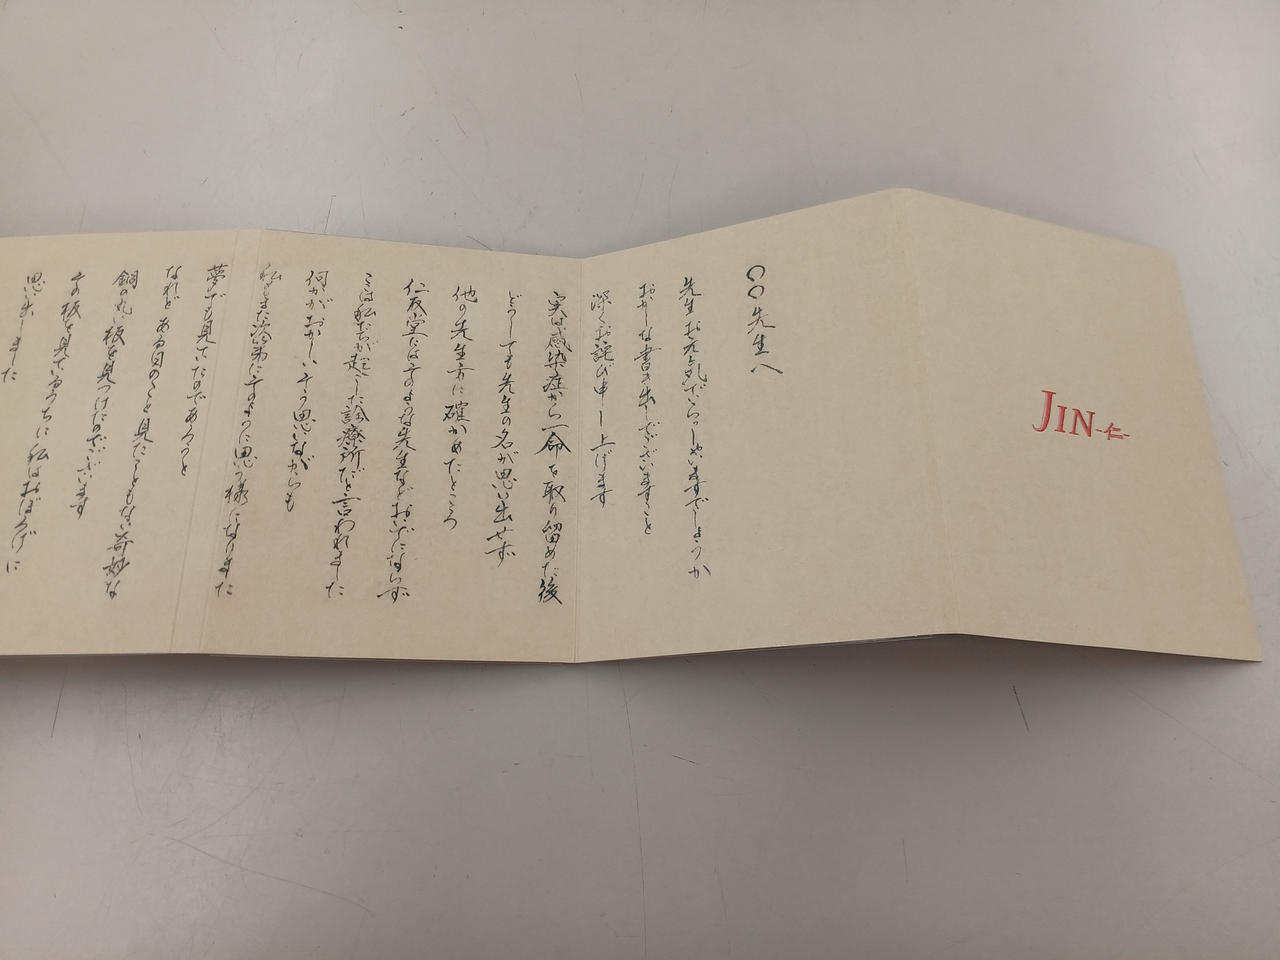 JIN-仁-
〇〇先生へ
先生お元気でいらっしゃいますでしょうか
おかしな書き出しでございますこと
深くお詫び申し上げます
実は感染症から一命を取り留めた後
どうしても先生の名が思い出せず
他の先生方に確かめたところ
仁友堂にはそのような先生などおいでにならず
ここは私たちが起こした診療所だと言われました
何かがおかしいそう思いながらも
私もまた次第にそのように思う様になりました
夢でも見ていたのであろうと
なれどある日のこと見たこともない奇妙な
銅の丸い板を見つけたのでございます
その板を見ているうちに私はおぼろげに
思い出しました